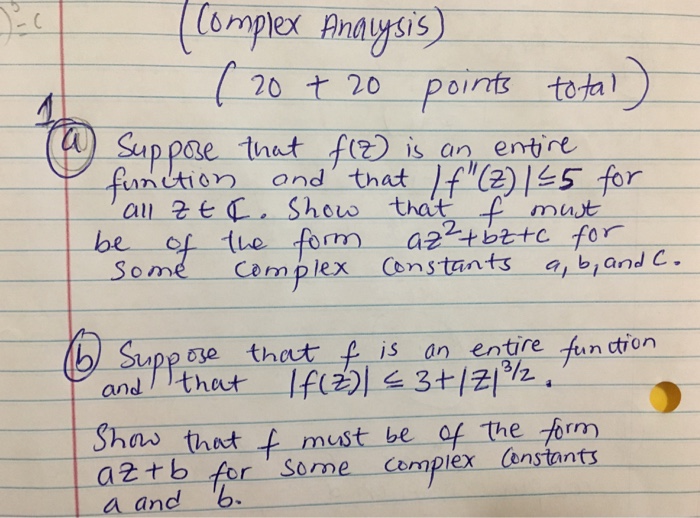 (Complex Analysis)
(20 + 20 points total)
1
(a) Suppose that f(z) is an entire
function and that |f"(z)|≤5 for
all z ∈ ℂ. Show that f must
be of the form az²+bz+c for
some complex constants a, b, and c.
(b) Suppose that f is an entire function
and that |f(z)| ≤ 3+|z|^3/2.
Show that f must be of the form
az+b for some complex constants
a and b.